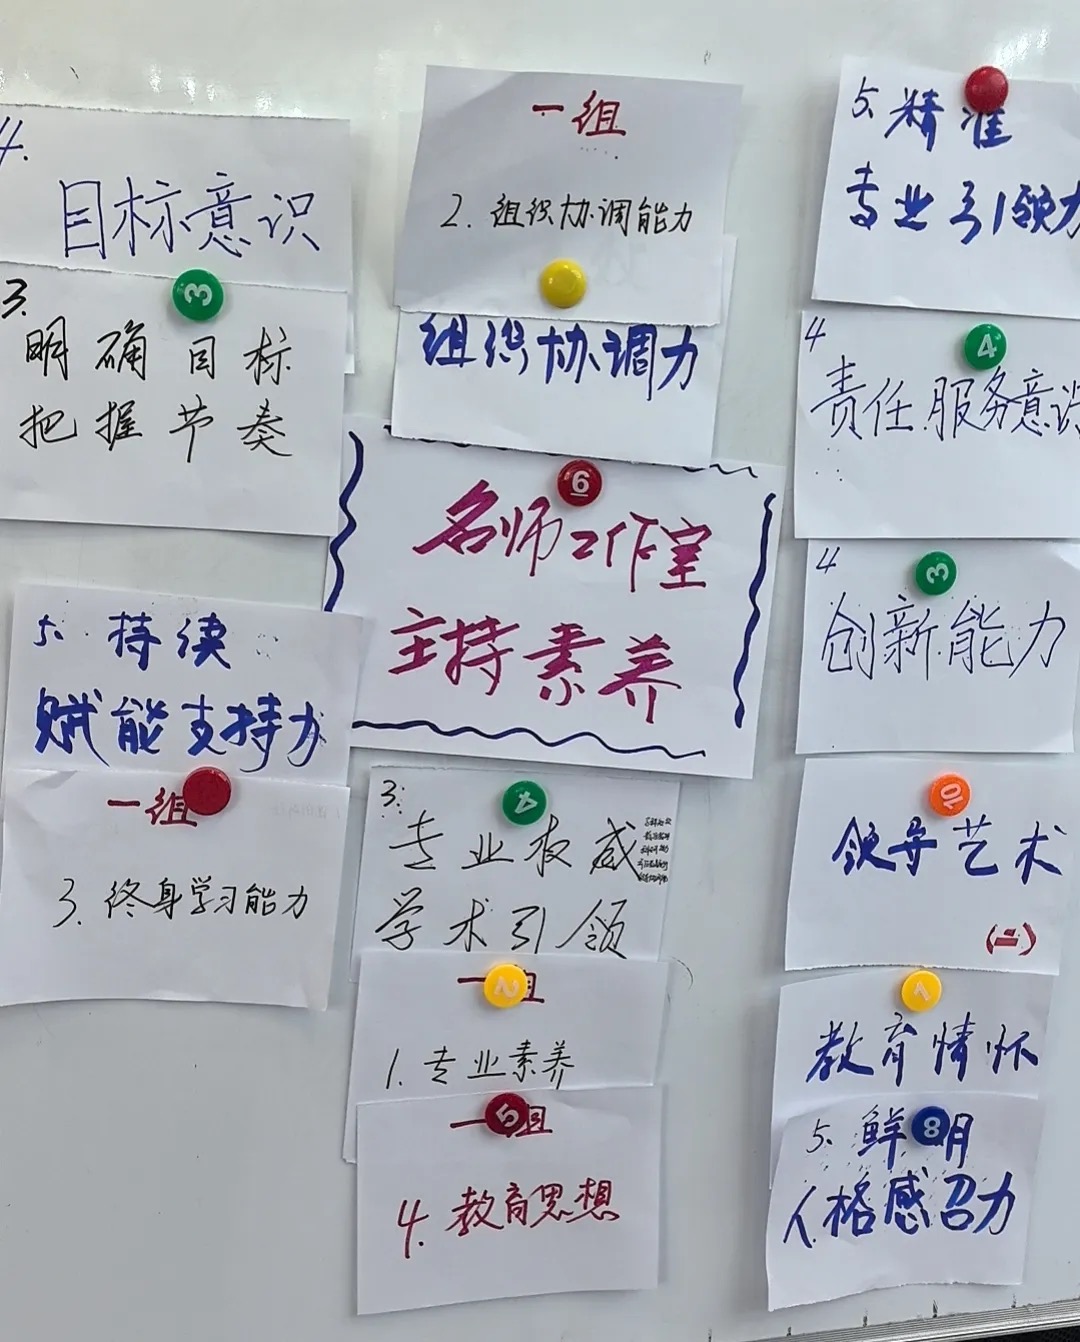 4.
目标意识
3.
明确目标
把握节奏
5. 持续
赋能支持力
一组
3. 终身学习能力
一组
2. 组织协调能力
组织协调力
名师工作室
主持素养
3.
专业权威
学术引领
一组
1. 专业素养
一组
4. 教育思想
5. 精准
专业引领力
4
责任服务意识
4
创新能力
领导艺术
(二)
教育情怀
5. 鲜明
人格感召力